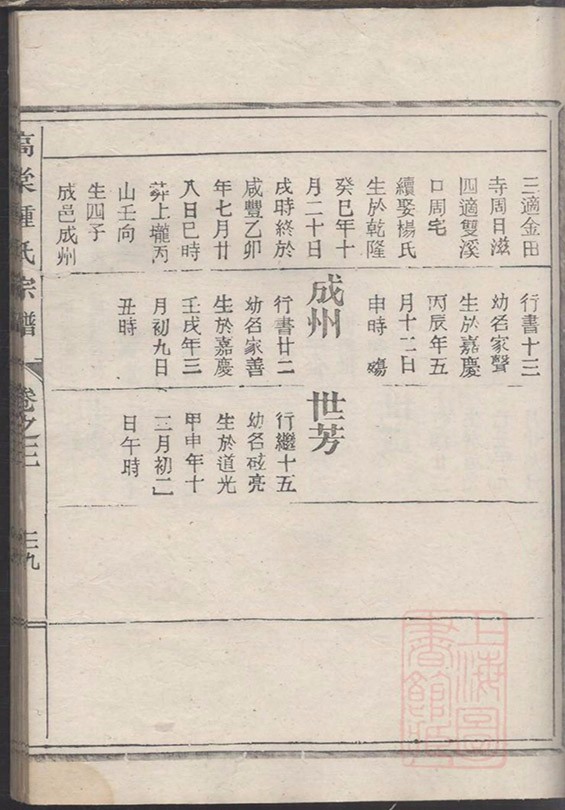 三適金田
寺周日滋
四適雙溪
口周宅
續娶楊氏
生於乾隆
癸巳年十
月二十日
戌時終於
咸豐乙卯
年七月廿
八日巳時
葬上壠丙
山壬向
生四子
成邑成州
行書十三
幼名家聲
生於嘉慶
丙辰年五
月十二日
申時 殤
成州
行書廿二
幼名家善
生於嘉慶
壬戌年三
月初九日
丑時
世芳
行繼十五
幼名砡亮
生於道光
甲申年十
二月初二
日午時
高棠鍾氏宗譜
卷之三
三九
上海圖
書館藏